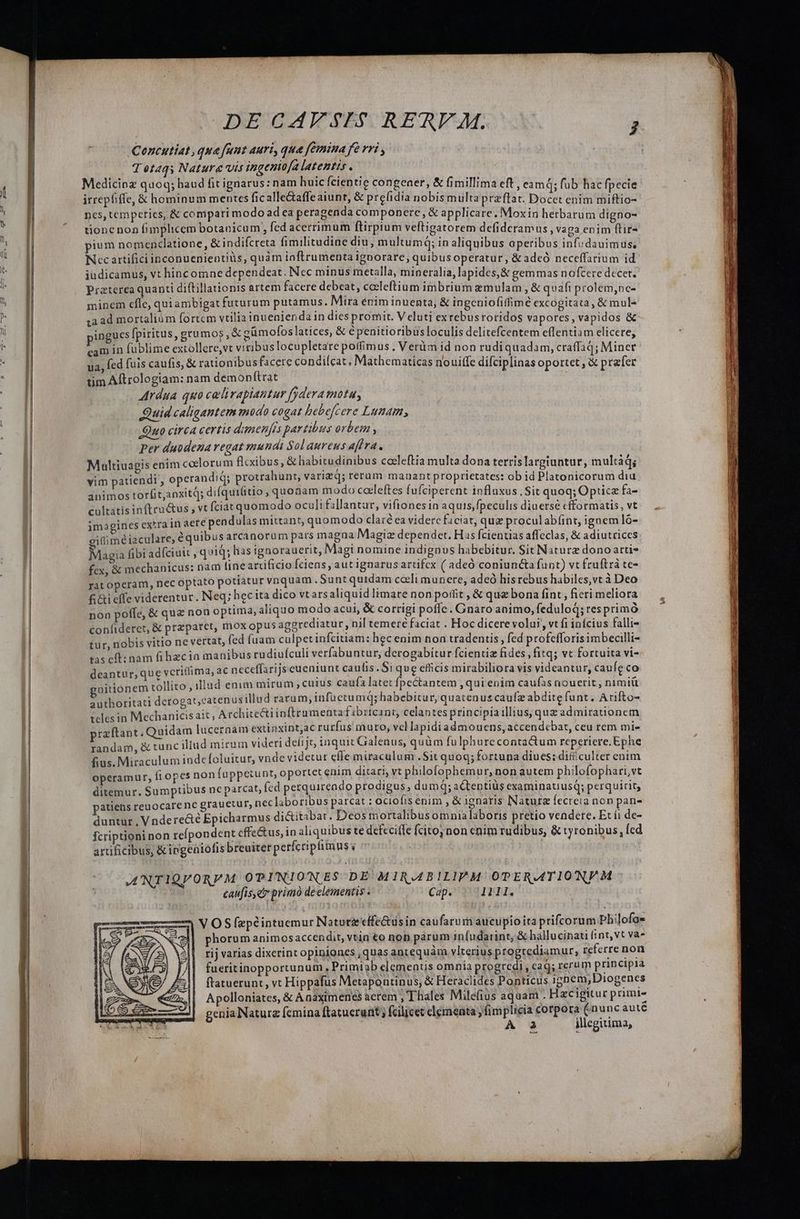 DE CAVSIS RERVM. 3
Concutiat, quæ sunt auri, quæ semina fe rri,
Totaq; Naturæ vis ingeniosa latentis.
Medicinæ quoq; haud sit ignarus: nam huic scientię congener, & simillima est, eamq́; sub hac specie
irrepsisse, & hominum mentes sic allectasse aiunt, & pręsidia nobis multa præstat. Docet enim mistio-
nes, temperies, & compati modo ad ea peragenda componere, & applicare. Mox in herbarum digno-
tione non simplicem botanicum, sed acerrimum stirpium vestigatorem desideramus, vaga enim stir-
pium nomenclatione, & indiscreta similitudine diu, multumq́; in aliquibus operibus insudauimus.
Nec artifici inconuenientiùs, quàm instrumenta ignorare, quibus operatur, & adeò necessarium id
iudicamus, vt hinc omne dependeat. Nec minus metalla, mineralia, lapides, & gemmas noscere decet.
Præterea quanti distillationis artem facere debeat, cœlestium imbrium æmulam, & quasi prolem, ne-
minem esse, qui ambigat futurum putamus. Mira enim inuenta, & ingeniosissimè excogitata, & mul-
ta ad mortaliũm sortem vtilia inuenienda in dies promit. Veluti ex rebus roridos vapores, vapidos &
pingues spiritus, grumos, & gũmosos latices, & è penitioribus loculis delitescentem essentiam elicere,
eam in sublime extollere, vt viribus locupletare possimus. Verùm id non rudi quadam, crassaq́; Miner
ua, sed suis causis, & rationibus facere condiscat. Mathematicas nouisse disciplinas oportet, & præser
tim Astrologiam: nam demonstrat
Ardua quo cœli rapiantur sydera motu,
Quid caligantem modo cogat hebescere Lunam,
Quo circa certis dimensis partibus orbem,
Per duodena regat mundi Sol aureus astra.
Multiuagis enim cœlorum flexibus, & habitudinibus cœlestia multa dona terris largiuntur, multàq́;
vim patiendi, operandiq́; protrahunt, variæq́; rerum manant proprietates: ob id Platonicorum diu
animos torsit, anxitq́; disquisitio, quonam modo cœlestes susciperent influxus. Sit quoq; Opticæ fa-
cultatis instructus, vt sciat quomodo oculi fallantur, visiones in aquis, speculis diuersè efformatis, vt
imagines extra in aere pendulas mittant, quomodo claré ea videre faciat, quæ procul absint, ignem lõ-
gissimè iaculare, è quibus arcanorum pars magna Magiæ dependet. Has scientias asseclas, & adiutrices
Magia sibi adsciuit, quiq́; has ignorauerit, Magi nomine indignus habebitur. Sit Naturæ dono artis-
fex, & mechanicus: nam sine artificio sciens, aut ignarus artifex (adeò coniuncta sunt) vt frustrà te-
rat operam, nec optato potiatur vnquam. Sunt quidam cœli munere, adeò his rebus habiles, vt à Deo
ficti esse viderentur. Neq; hęc ita dico vt ars aliquid limare non possit, & quæ bona sint, fieri meliora
non posse, & quæ non optima, aliquo modo acui, & corrigi posse. Gnaro animo, seduloq́; res primò
consideret, & præparet, mox opus aggrediatur, nil temerè faciat. Hoc dicere volui, vt si inscius falli-
tur, nobis vitio ne vertat, sed suam culpet inscitiam: hęc enim non tradentis, sed professoris imbecilli-
tas est: nam si hæc in manibus rudiusculi versabuntur, derogabitur scientiæ fides, fitq; vt fortuita vi-
deantur, que verissima, ac necessarijs eueniunt causis. Si quę efficis mirabiliora vis videantur, causę co
gnitionem tollito, illud enim mirum, cuius causa latet spectantem, qui enim causas nouerit, nimiũ
authoritati derogat, eatenus illud rarum, insuetumq́; habebitur, quatenus causæ abditę sunt. Aristo-
teles in Mechanicis ait, Architecti instrumenta fabricant, celantes principia illius, quæ admirationem
præstant. Quidam lucernam extinxint, ac rursus muro, vel lapidi admouens, accendebat, ceu rem mi-
randam, & tunc illud mirum videri desijt, inquit Galenus, quùm sulphure contactum reperiere. Ephe
sius. Miraculum inde soluitur, vnde videtur esse miraculum. Sit quoq; fortuna diues: difficulter enim
operamur, si opes non suppetunt, oportet enim ditari, vt philosophemur, non autem philosophari, vt
ditemur. Sumptibus ne parcat, sed perquirendo prodigus, dumq́; actentiùs examinatiusq́; perquirit,
patiens reuocare ne grauetur, nec laboribus parcat: ociosis enim, & ignaris Naturæ secreta non pan-
duntur. Vnde rectè Epicharmus dictitabat. Deos mortalibus omnia laboris pretio vendere. Et si de-
scriptioni non respondent effectus, in aliquibus te defecisse scito, non enim rudibus, & tyronibus, sed
artificibus, & ingeniosis breuiter perscripsimus.
ANTIQVORVM OPINIONES DE MIRABILIVM OPERATIONVM
causis, & primò de elementis. Cap. IIII.
VOS sæpè intuemur Naturæ effectus in causarum aucupio ita priscorum Philoso-
phorum animos accendit, vt in eo non parum insudarint, & hallucinati sint, vt va-
rij varias dixerint opiniones, quas antequàm vlterius progrediamur, referre non
fuerit inopportunum. Primi ab elementis omnia progredi, eaq́; rerum principia
statuerunt, vt Hippasus Metapontinus, & Heraclides Ponticus ignem, Diogenes
Apolloniates, & Anaximenes aerem, Thales Milesius aquam. Hæc igitur primi-
genia Naturæ semina statuerunt, scilicet elementa, simplicia corpora (nunc autē
A 2 illegitima,